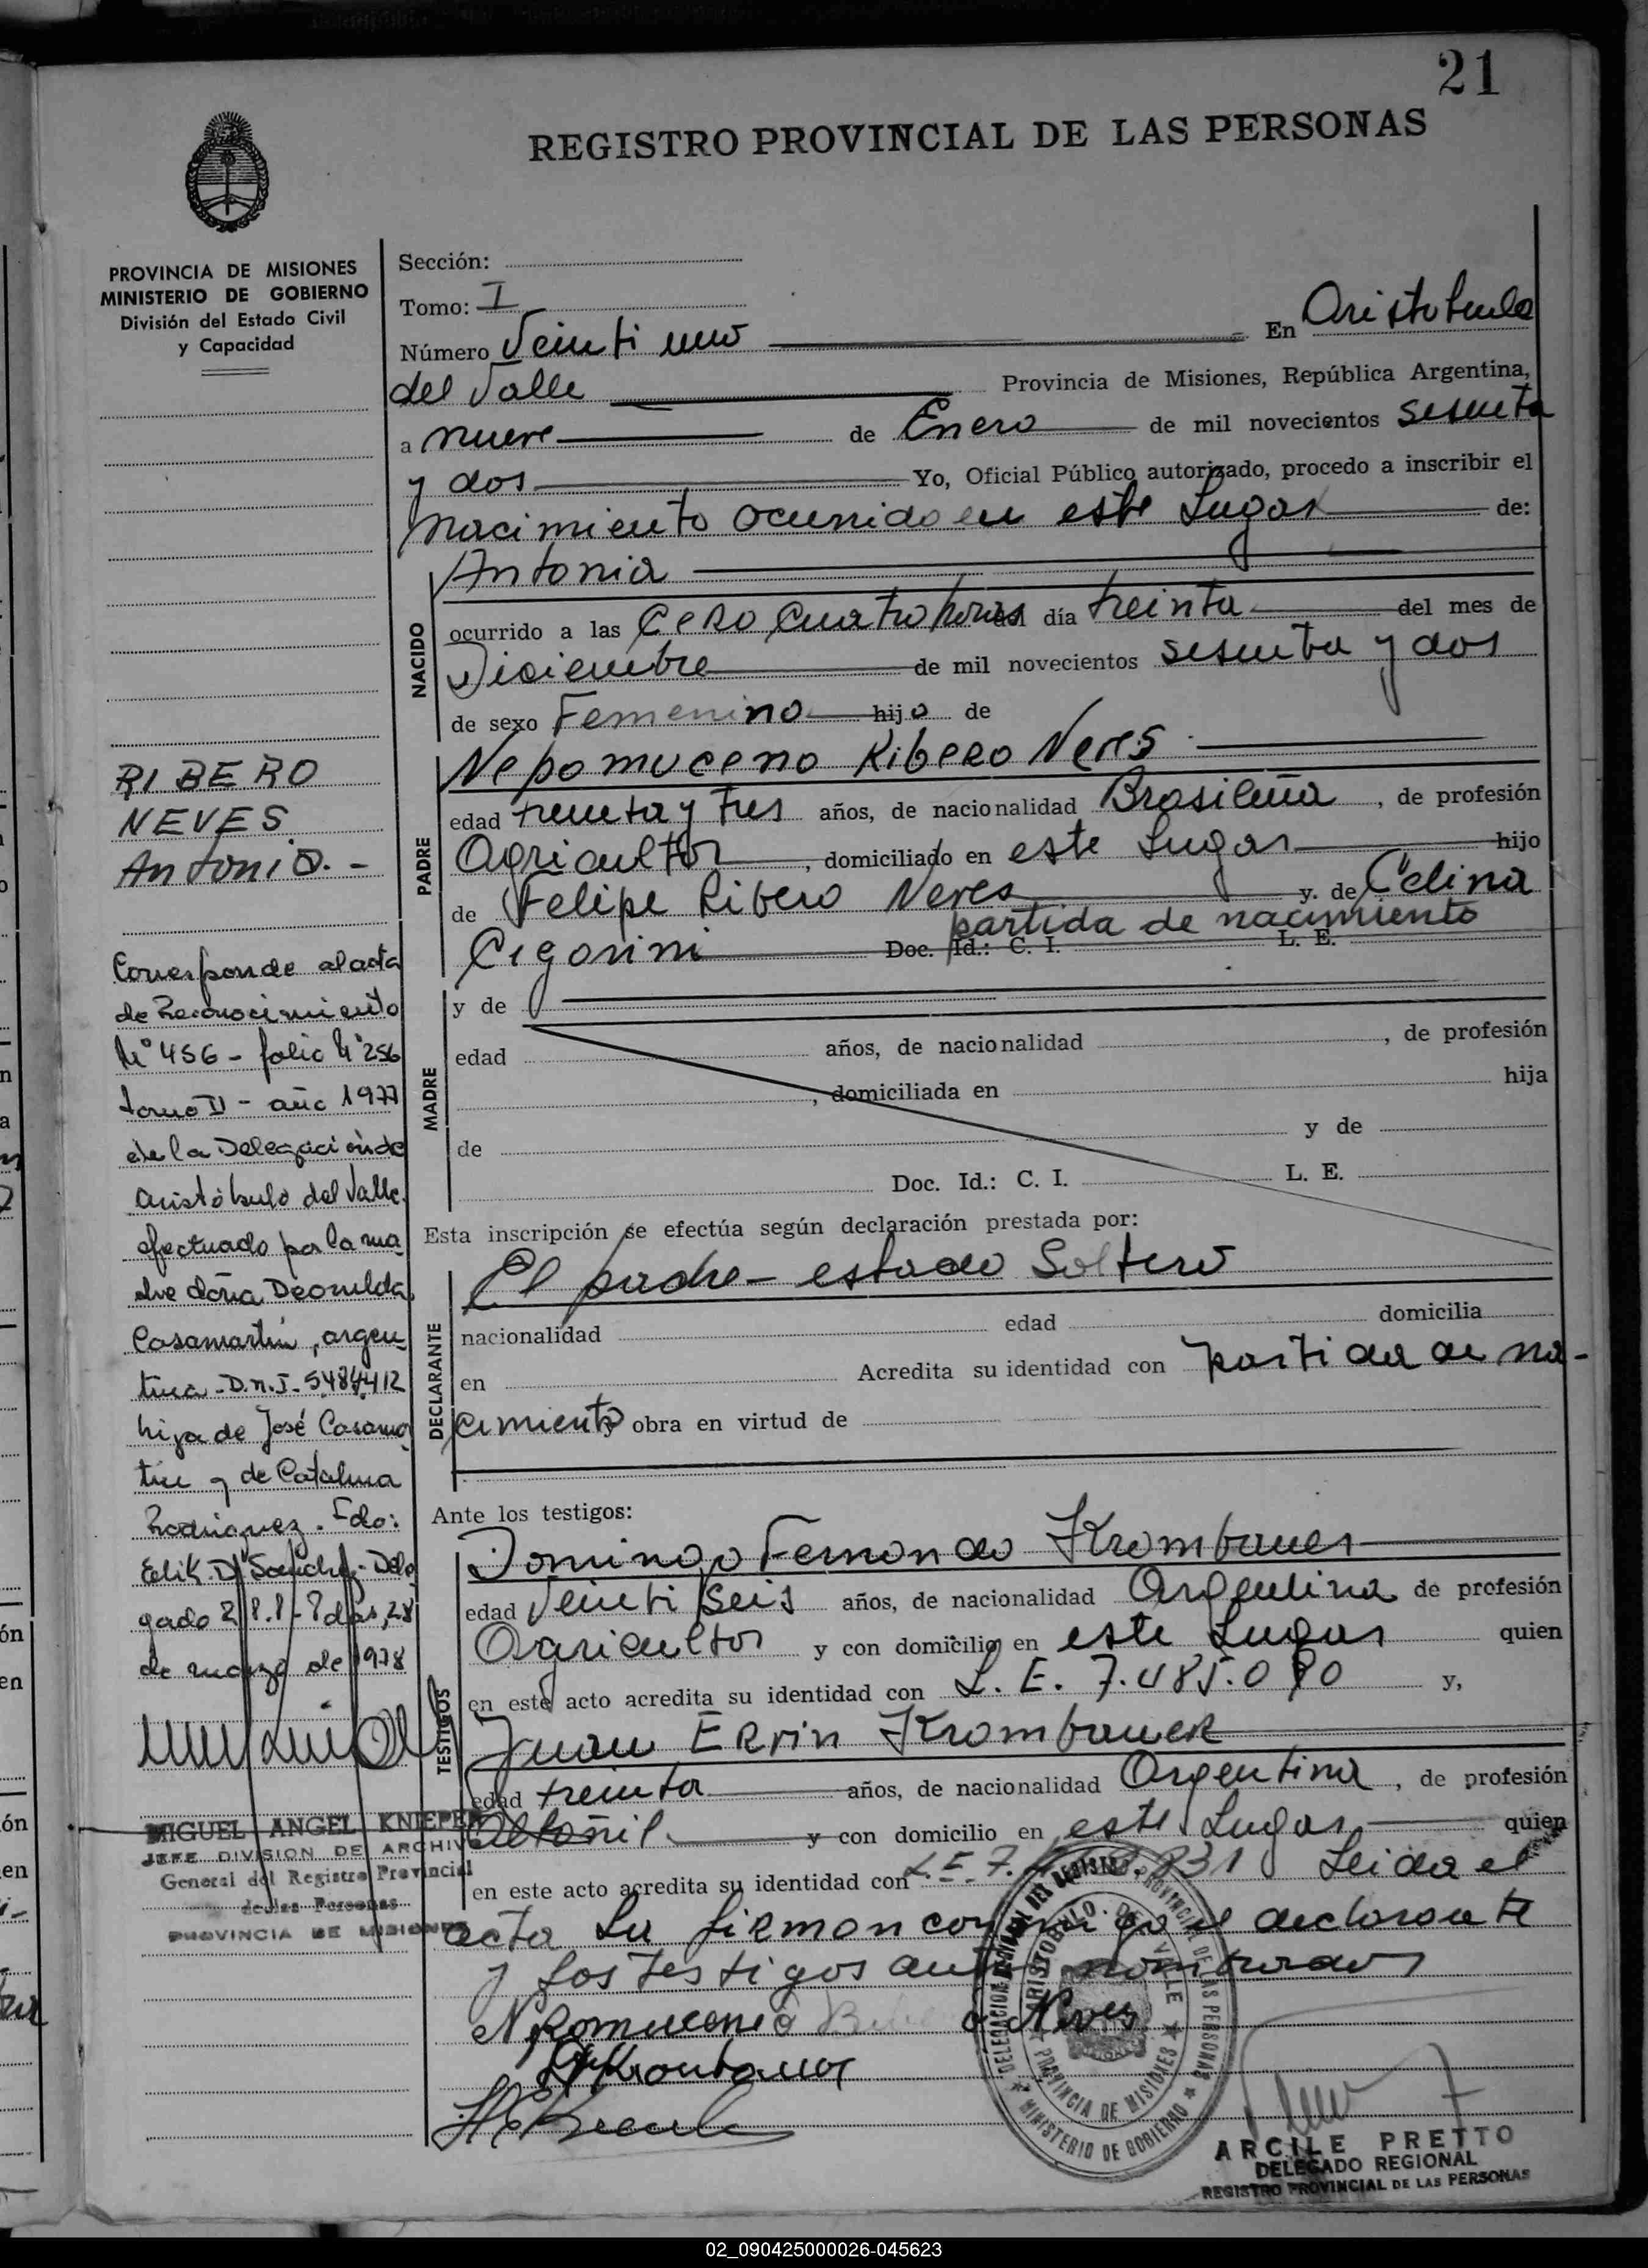 21
REGISTRO PROVINCIAL DE LAS PERSONAS
PROVINCIA DE MISIONES
MINISTERIO DE GOBIERNO
División del Estado Civil
y Capacidad
Sección:
Tomo: I
Número Veinti uno En Aristobulo
del Valle Provincia de Misiones, República Argentina,
a nueve de Enero de mil novecientos sesenta
y dos Yo, Oficial Público autorizado, procedo a inscribir el
nacimiento ocurrido en este Lugar de:
NACIDO
Antonia
ocurrido a las Cero Cuatro horas día treinta del mes de
Diciembre de mil novecientos sesenta y dos
de sexo Femenino hijo de
PADRE
Nepomuceno Ribero Neves
edad treinta y tres años, de nacionalidad Brasileña, de profesión
Agricultor, domiciliado en este Lugar hijo
de Felipe Ribero Neves y. de Celina
partida de nacimiento
Cigorini Doc. Id.: C. I. L. E.
MADRE
y de
edad años, de nacionalidad , de profesión
, domiciliada en hija
de y de
Doc. Id.: C. I. L. E.
Esta inscripción se efectúa según declaración prestada por:
DECLARANTE
El padre - estado Soltero
nacionalidad edad domicilia
en Acredita su identidad con partida de na-
cimiento y obra en virtud de
Ante los testigos:
TESTIGOS
Domingo Fernando Krombauer
edad Veinti Seis años, de nacionalidad Argentina de profesión
Agricultor y con domicilio en este Lugar quien
en este acto acredita su identidad con L. E. 7.485.090 y,
Juan Ervin Krombauer
edad treinta años, de nacionalidad Argentina, de profesión
Albañil y con domicilio en este Lugar quien
en este acto acredita su identidad con L.E. 7. 831 Leida el
acta la firman conmigo el declarante
y los testigos antes nombrados
Nepomuceno Neves
RIBERO
NEVES
Antonia.-
Corresponde al acta
de Reconocimiento
Nº 456 - folio Nº 256
tomo II - año 1977
de la Delegación de
Aristóbulo del Valle.
efectuado por la ma
dre doña Deonilda
Casamartin, argen
tina - D.N.I - 5.484.412
hija de José Casamar
tin y de Catalina
Rodriguez. Fdo:
Delegado
de marzo de 1978
MIGUEL ANGEL KNIEPER
JEFE DIVISION DE ARCHIVO
General del Registro Provincial
de las Personas
PROVINCIA DE MISIONES
ARISTOBULO DEL VALLE
PROVINCIA DE MISIONES
MINISTERIO DE GOBIERNO
ARCILE PRETTO
DELEGADO REGIONAL
REGISTRO PROVINCIAL DE LAS PERSONAS
02_090425000026-045623